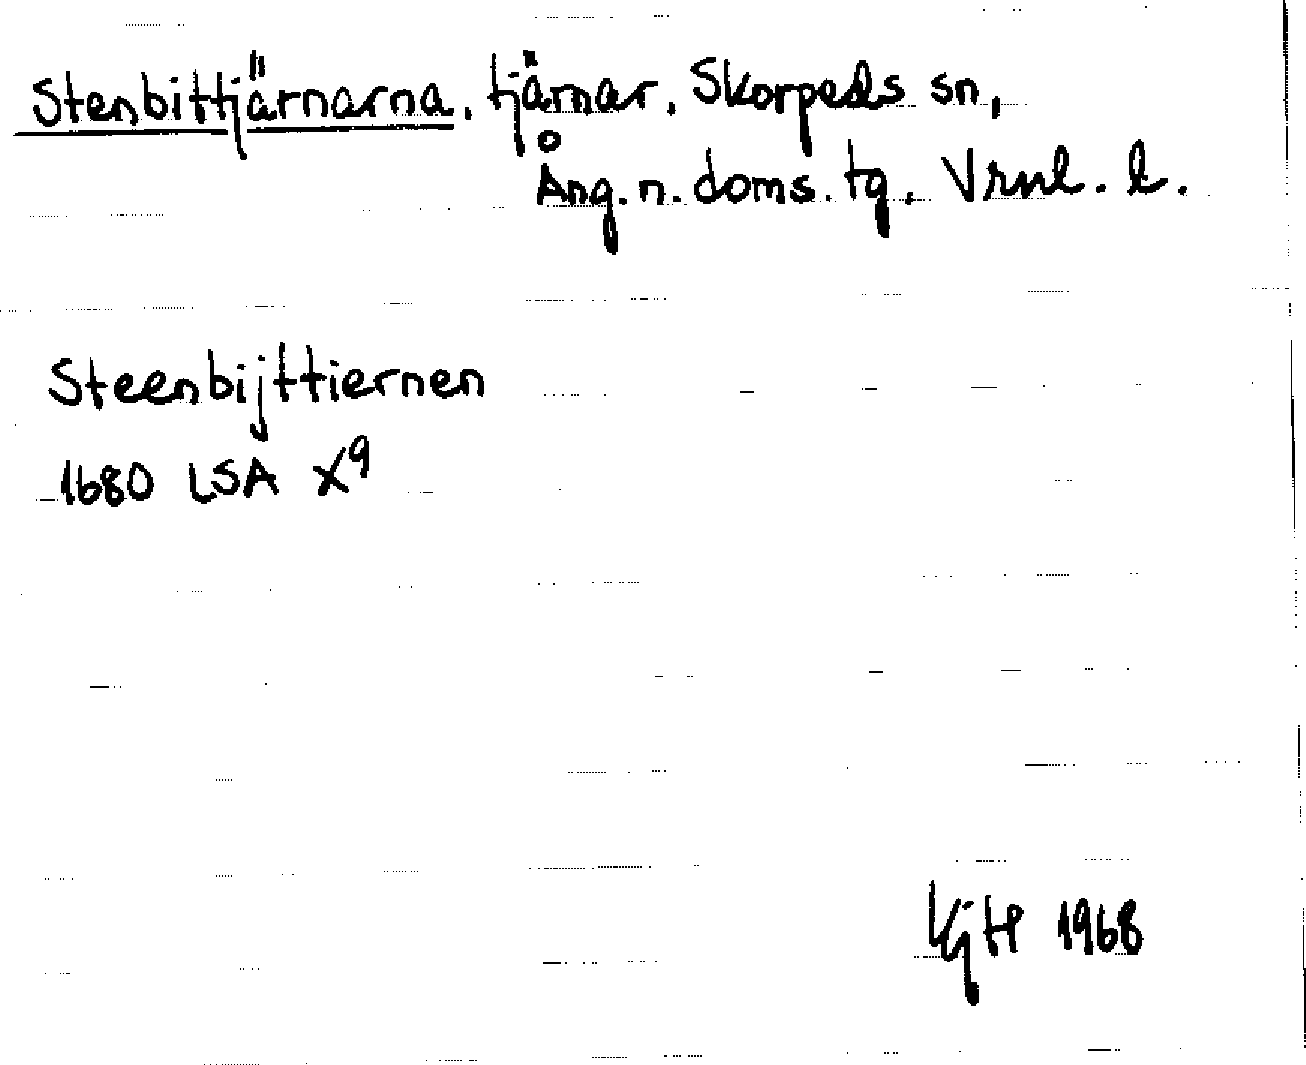 Stenbittjärnarna, tjärnar, Skorpeds sn,
Ång.n. doms. tg, Vrnl. l.
Steenbijttiernen
1680 LSA X9
1968